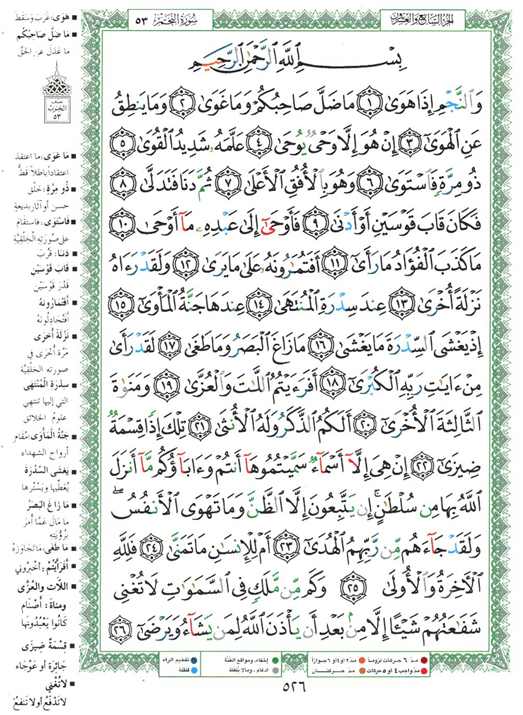 الجزء السابع والعشرين
سورة النجم ٥٣
بِسْمِ ٱللَّهِ ٱلرَّحْمَٰنِ ٱلرَّحِيمِ
وَٱلنَّجْمِ إِذَا هَوَىٰ ١ مَا ضَلَّ صَاحِبُكُمْ وَمَا غَوَىٰ ٢ وَمَا يَنطِقُ
عَنِ ٱلْهَوَىٰٓ ٣ إِنْ هُوَ إِلَّا وَحْىٌ يُوحَىٰ ٤ عَلَّمَهُۥ شَدِيدُ ٱلْقُوَىٰ ٥
ذُو مِرَّةٍ فَٱسْتَوَىٰ ٦ وَهُوَ بِٱلْأُفُقِ ٱلْأَعْلَىٰ ٧ ثُمَّ دَنَا فَتَدَلَّىٰ ٨
فَكَانَ قَابَ قَوْسَيْنِ أَوْ أَدْنَىٰ ٩ فَأَوْحَىٰٓ إِلَىٰ عَبْدِهِۦ مَآ أَوْحَىٰ ١٠
مَا كَذَبَ ٱلْفُؤَادُ مَا رَأَىٰٓ ١١ أَفَتُمَٰرُونَهُۥ عَلَىٰ مَا يَرَىٰ ١٢ وَلَقَدْ رَءَاهُ
نَزْلَةً أُخْرَىٰ ١٣ عِندَ سِدْرَةِ ٱلْمُنتَهَىٰ ١٤ عِندَهَا جَنَّةُ ٱلْمَأْوَىٰٓ ١٥
إِذْ يَغْشَى ٱلسِّدْرَةَ مَا يَغْشَىٰ ١٦ مَا زَاغَ ٱلْبَصَرُ وَمَا طَغَىٰ ١٧ لَقَدْ رَأَىٰ
مِنْ ءَايَٰتِ رَبِّهِ ٱلْكُبْرَىٰٓ ١٨ أَفَرَءَيْتُمُ ٱللَّٰتَ وَٱلْعُزَّىٰ ١٩ وَمَنَوٰةَ
ٱلثَّالِثَةَ ٱلْأُخْرَىٰٓ ٢٠ أَلَكُمُ ٱلذَّكَرُ وَلَهُ ٱلْأُنثَىٰ ٢١ تِلْكَ إِذًا قِسْمَةٌ
ضِيزَىٰٓ ٢٢ إِنْ هِىَ إِلَّآ أَسْمَآءٌ سَمَّيْتُمُوهَآ أَنتُمْ وَءَابَآؤُكُم مَّآ أَنزَلَ
ٱللَّهُ بِهَا مِن سُلْطَٰنٍ ۚ إِن يَتَّبِعُونَ إِلَّا ٱلظَّنَّ وَمَا تَهْوَى ٱلْأَنفُسُ ۖ
وَلَقَدْ جَآءَهُم مِّن رَّبِّهِمُ ٱلْهُدَىٰٓ ٢٣ أَمْ لِلْإِنسَٰنِ مَا تَمَنَّىٰ ٢٤ فَلِلَّهِ
ٱلْءَاخِرَةُ وَٱلْأُولَىٰ ٢٥ وَكَم مِّن مَّلَكٍ فِى ٱلسَّمَٰوَٰتِ لَا تُغْنِى
شَفَٰعَتُهُمْ شَيْـًٔا إِلَّا مِنۢ بَعْدِ أَن يَأْذَنَ ٱللَّهُ لِمَن يَشَآءُ وَيَرْضَىٰٓ ٢٦
هَوَى: غَرَبَ وَسَقَطَ
مَا ضَلَّ صَاحِبُكُم
ما عَدَلَ عن الحَقّ
نصف
الحزب
٥٣
مَا غَوَى: ما اعتقد
اعتقادًا باطلًا قط
ذُو مِرَّةٍ: خَلْقٍ
حسن أو آثار بديعة
فَاسْتَوَى: فاستقام
على صورته الخلقية
دَنَا: قَرُبَ
قَابَ قَوْسَيْنِ
قَدْرَ قوسين
أَفَتُمَارُونَهُ
أفتجادلونه
نَزْلَةً أُخْرَى
مرّة أخرى في
صورته الخلقية
سِدْرَةِ الْمُنْتَهَى
التي إليها تنتهي
علوم الخلائق
جَنَّةُ الْمَأْوَى: مقام
أرواح الشهداء
يَغْشَى السِّدْرَةَ
يغطّيها ويسترها
مَا زَاغَ الْبَصَرُ
ما مال عمّا أُمر
برؤيته
مَا طَغَى: ما تجاوزه
أَفَرَأَيْتُمُ: أخبروني
اللَّاتَ وَالْعُزَّى
ومناة: أصنام
كانوا يعبدونها
قِسْمَةٌ ضِيزَى
جائرة أو عوجاء
لَا تُغْنِي
لا تدفع أو لا تنفع
مدّ ٦ حركات لزوماً
مدّ ٢ أو ٤ أو ٦ جوازاً
إخفاء، ومواقع الغنّة
تفخيم الراء
مدّ واجب ٤ أو ٥ حركات
مدّ حركتان
ادغام، وما لا يلفظ
قلقلة
٥٢٦